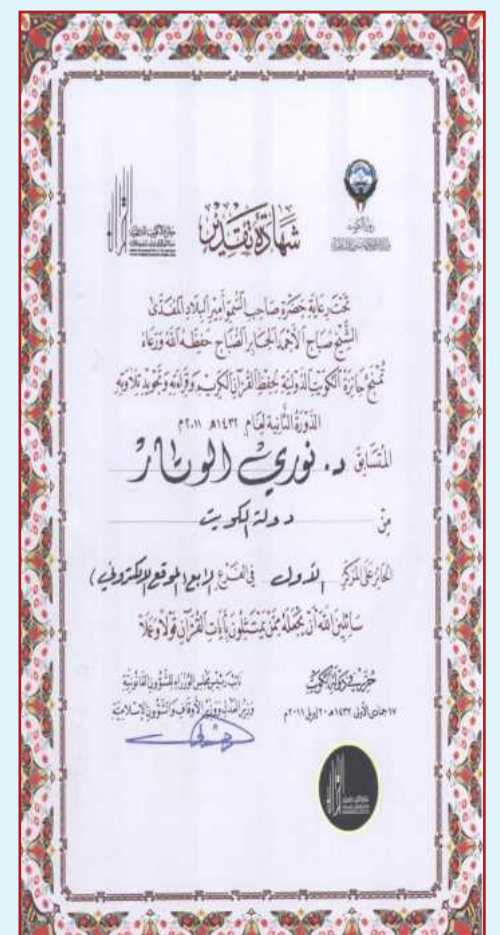 دولة الكويت
شهادة تقدير
تحت رعاية حضرة صاحب السمو أمير البلاد المفدى
الشيخ صباح الأحمد الجابر الصباح حفظه الله ورعاه
تمنح جائزة الكويت الدولية لحفظ القرآن الكريم وقراءته وتجويد تلاوته
الدورة الثانية لعام ١٤٣٢هـ ٢٠١١م
المتسابق د. نوري الوتار
من دولة الكويت
الحائز على المركز الأول في الفرع الرابع (الموقع الإلكتروني)
سائلين الله أن يجعله ممن يتمسكون بآيات القرآن قولا وعملا
حرر في دولة الكويت
١٧ جمادى الأولى ١٤٣٢هـ ٢٠ إبريل ٢٠١١م
نائب رئيس مجلس الوزراء للشؤون القانونية
وزير العدل ووزير الأوقاف والشؤون الإسلامية